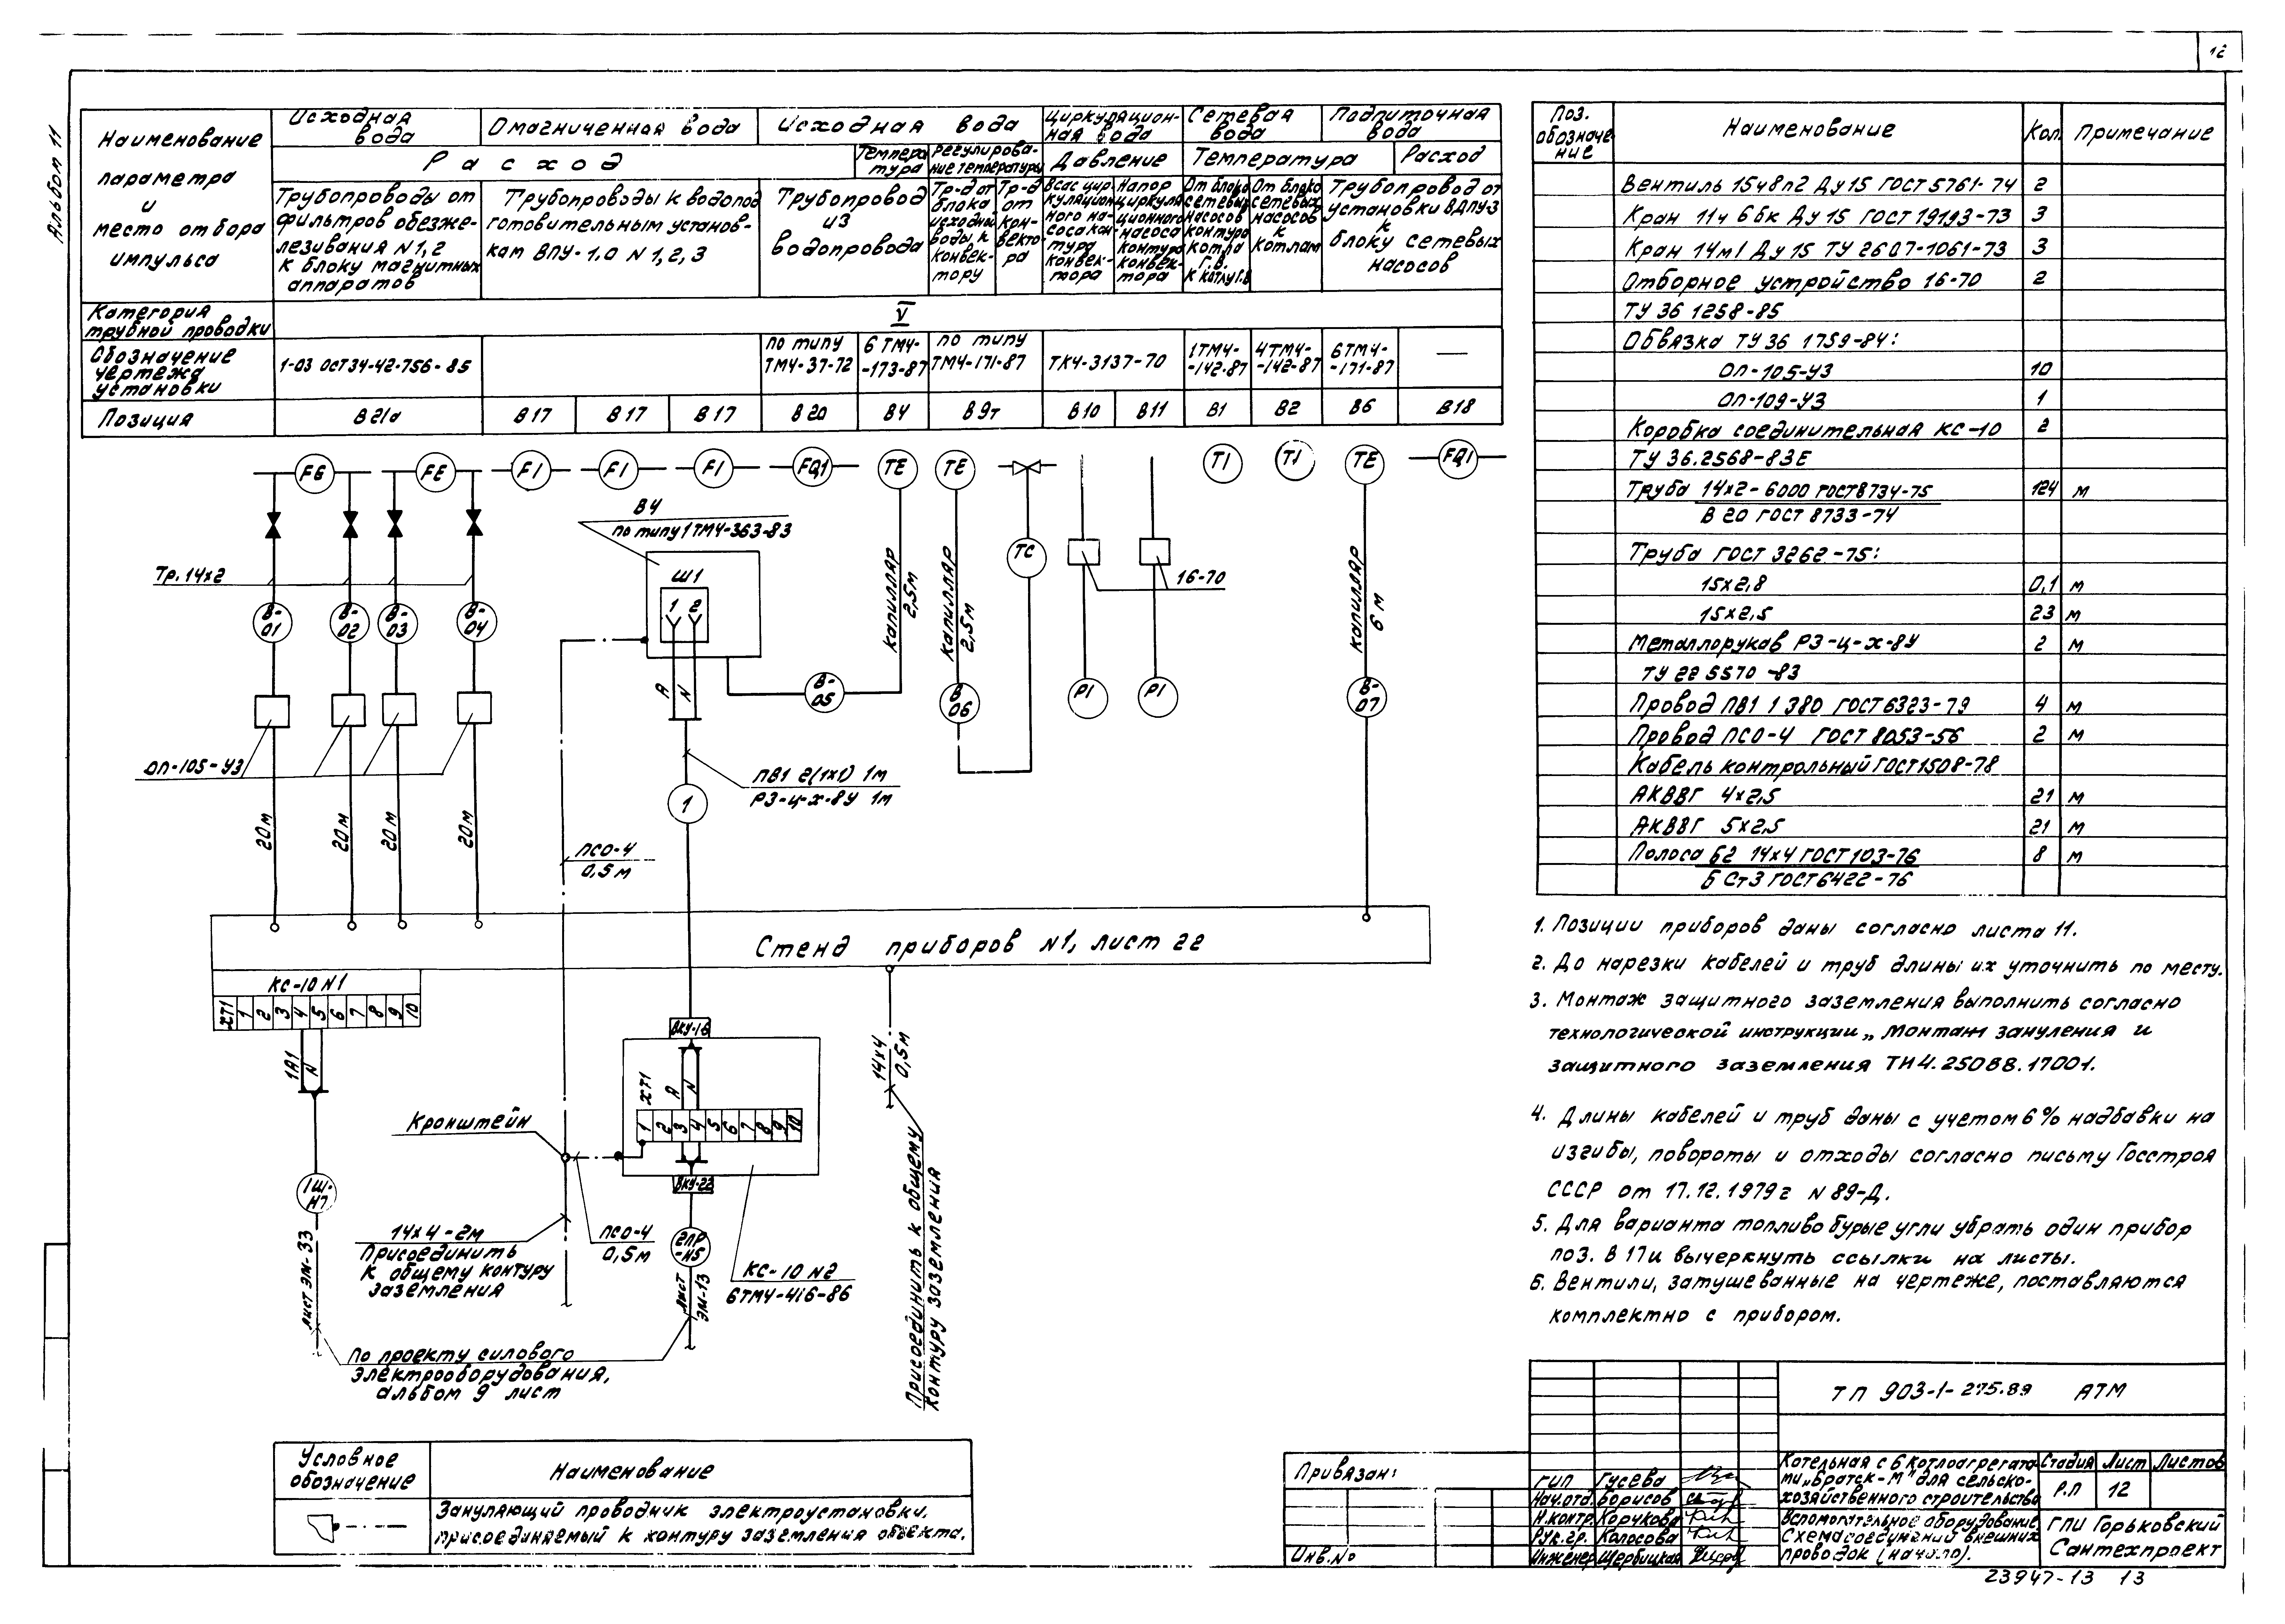 12
Альбом 11
Наименование
параметра
и
место отбора
импульса
Исходная
вода
Омагниченная вода
Исходная вода
Циркуляцион-
ная вода
Сетевая
вода
Подпиточная
вода
Расход
Темпера
тура
Регулирова-
ние температуры
Давление
Температура
Расход
Трубопроводы от
фильтров обезже-
лезивания N1,2
к блоку магнитных
аппаратов
Трубопроводы к водопод
готовительным установ-
кам ВПУ-1,0 N 1,2,3
Трубопровод
из
водопровода
Тр-д от
блока
исходной
воды к
конвек-
тору
Тр-д
от
кон-
векто-
ра
Всас цир-
куляцион
ного на-
соса кон-
тура
конвек-
тора
Напор
циркуля
ционного
насоса
контура
конвек-
тора
От блока
сетевых
насосов
контура
котла
Г.В.
к котлу Г.В
От блока
сетевых
насосов
к
котлам
Трубопровод от
установки ВДПУ-3
к
блоку сетевых
насосов
Категория
трубной проводки
V
Обозначение
чертежа
установки
1-03 ОСТ34-42-756-85
по типу
ТМ4-37-72
6 ТМ4-
-173-87
по типу
ТМ4-171-87
ТК4-3137-70
1ТМ4-
-142-87
4ТМ4-
-142-87
6ТМ4-
-171-87
—
Позиция
В21а
В17
В17
В17
В20
В4
В9т
В10
В11
В1
В2
В6
В18
FG
FE
FI
FI
FI
FQI
TE
TE
TI
TI
TE
FQI
В4
по типу 1ТМ4-363-83
Ш1
1 2
Тр. 14х2
В-
01
В-
02
В-
03
В-
04
ОП-105-У3
20м
20м
20м
20м
капилляр
2,5м
капилляр
2,5м
TC
16-70
PI
PI
капилляр
6 м
А
N
В-
05
В
06
В-
07
ПВ1 2(1х1) 1м
РЗ-Ц-Х-8У 1м
1
ПСО-4
0,5м
Стенд приборов N1, лист 22
КС-10 N1
ХТ1 1 2 3 4 5 6 7 8 9 10
1А1
N
1Ш-
Н7
лист ЭМ-33
ВКУ-16
ХТ1
А
N
1 2 3 4 5 6 7 8 9 10
ВКУ-22
2ПР
-Н5
лист
ЭМ-13
Кронштейн
14х4-2м
Присоединить
к общему контуру
заземления
ПСО-4
0,5м
КС-10 N2
6ТМ4-416-86
14х4
0,5м
Присоединить к общему
контуру заземления
По проекту силового
электрооборудования,
альбом 9 лист
Условное
обозначение
Наименование
Зануляющий проводник электроустановки,
присоединяемый к контуру заземления объекта.
Поз.
обозначе
ние
Наименование
Кол.
Примечание
Вентиль 15ч8п2 Ду 15 ГОСТ 5761-74 2
Кран 11ч 6 бк Ду 15 ГОСТ 19193-73 3
Кран 14м1 Ду 15 ТУ 2607-1061-73 3
Отборное устройство 16-70 2
ТУ 36 1258-85
Обвязка ТУ 36 1759-84:
ОП-105-У3 10
ОП-109-У3 1
Коробка соединительная КС-10 2
ТУ 36.2568-83Е
Труба 14х2-6000 ГОСТ 8734-75 124 м
В 20 ГОСТ 8733-74
Труба ГОСТ 3262-75:
15х2,8 0,1 м
15х2,5 23 м
Металлорукав РЗ-Ц-Х-8У 2 м
ТУ 22 5570-83
Провод ПВ1 1 380 ГОСТ 6323-79 4 м
Провод ПСО-4 ГОСТ 8053-56 2 м
Кабель контрольный ГОСТ 1508-78
АКВВГ 4х2,5 21 м
АКВВГ 5х2,5 21 м
Полоса Б2 14х4 ГОСТ 103-76 8 м
Б Ст3 ГОСТ 6422-76
1. Позиции приборов даны согласно листа 11.
2. До нарезки кабелей и труб длины их уточнить по месту.
3. Монтаж защитного заземления выполнить согласно
технологической инструкции „Монтаж зануления и
защитного заземления ТИ4.25088.17001.
4. Длины кабелей и труб даны с учетом 6% надбавки на
изгибы, повороты и отходы согласно письму Госстроя
СССР от 17.12.1979г N 89-Д.
5. Для варианта топливо бурые угли убрать один прибор
поз. В 17 и вычеркнуть ссылки на листы.
6. Вентили, затушеванные на чертеже, поставляются
комплектно с прибором.
ТП 903-1-275.89 АТМ
Привязан:
Инв.No
ГИП Гусева
Нач.отд. Борисов
Н.контр. Корукова
Рук.гр. Колосова
Инженер Щербицкая
Котельная с 6 котлоагрегата-
ми „Братск-М" для сельско-
хозяйственного строительства
Стадия Лист Листов
Р.П 12
Вспомогательное оборудование
Схема соединений внешних
проводок (начало).
ГПИ Горьковский
Сантехпроект
23947-13 13